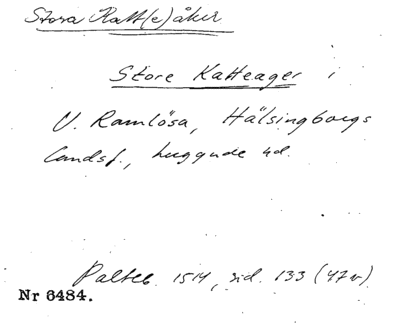 Stora Katt(e)åker
Store Katteager i
V. Ramlösa, Hälsingborgs
landsf., huggude äd.
Palteb. 1514, sid. 133 (47v)
Nr 6484.